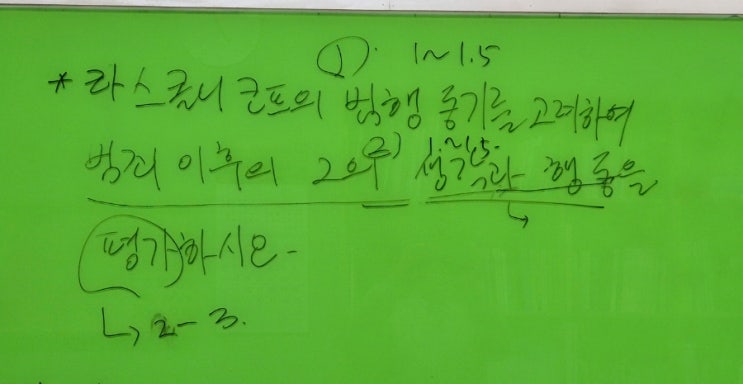 ① 1~1.5
* 라스콜니코프의 범행 동기를 고려하여
② 1~1.5
범죄 이후의 그의 생각과 행동을
평가하시오.
↳ 2-3.